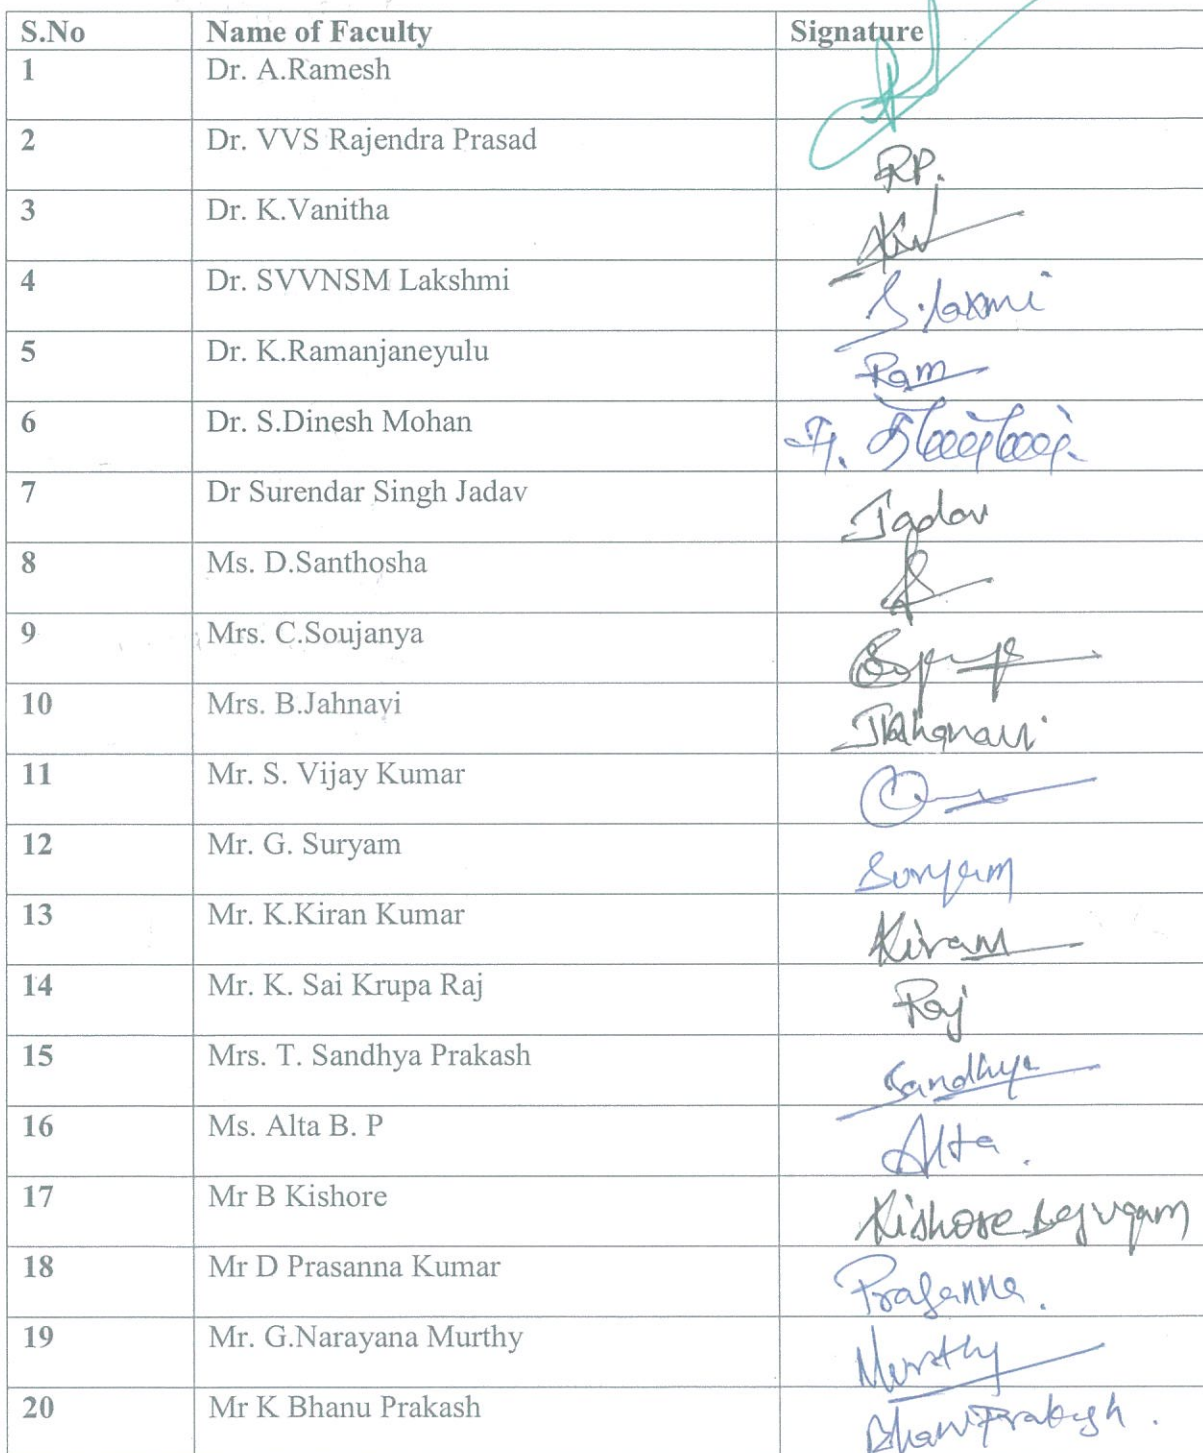 S.No Name of Faculty Signature
1 Dr. A.Ramesh
2 Dr. VVS Rajendra Prasad RP.
3 Dr. K.Vanitha
4 Dr. SVVNSM Lakshmi S.laxmi
5 Dr. K.Ramanjaneyulu Ram
6 Dr. S.Dinesh Mohan
7 Dr Surendar Singh Jadav Jadav
8 Ms. D.Santhosha
9 Mrs. C.Soujanya
10 Mrs. B.Jahnavi
11 Mr. S. Vijay Kumar
12 Mr. G. Suryam Suryam
13 Mr. K.Kiran Kumar Kiran
14 Mr. K. Sai Krupa Raj Raj
15 Mrs. T. Sandhya Prakash Sandhya
16 Ms. Alta B. P Alta.
17 Mr B Kishore Kishore Bejugam
18 Mr D Prasanna Kumar Prasanna.
19 Mr. G.Narayana Murthy Murthy
20 Mr K Bhanu Prakash BhanuPrakash.